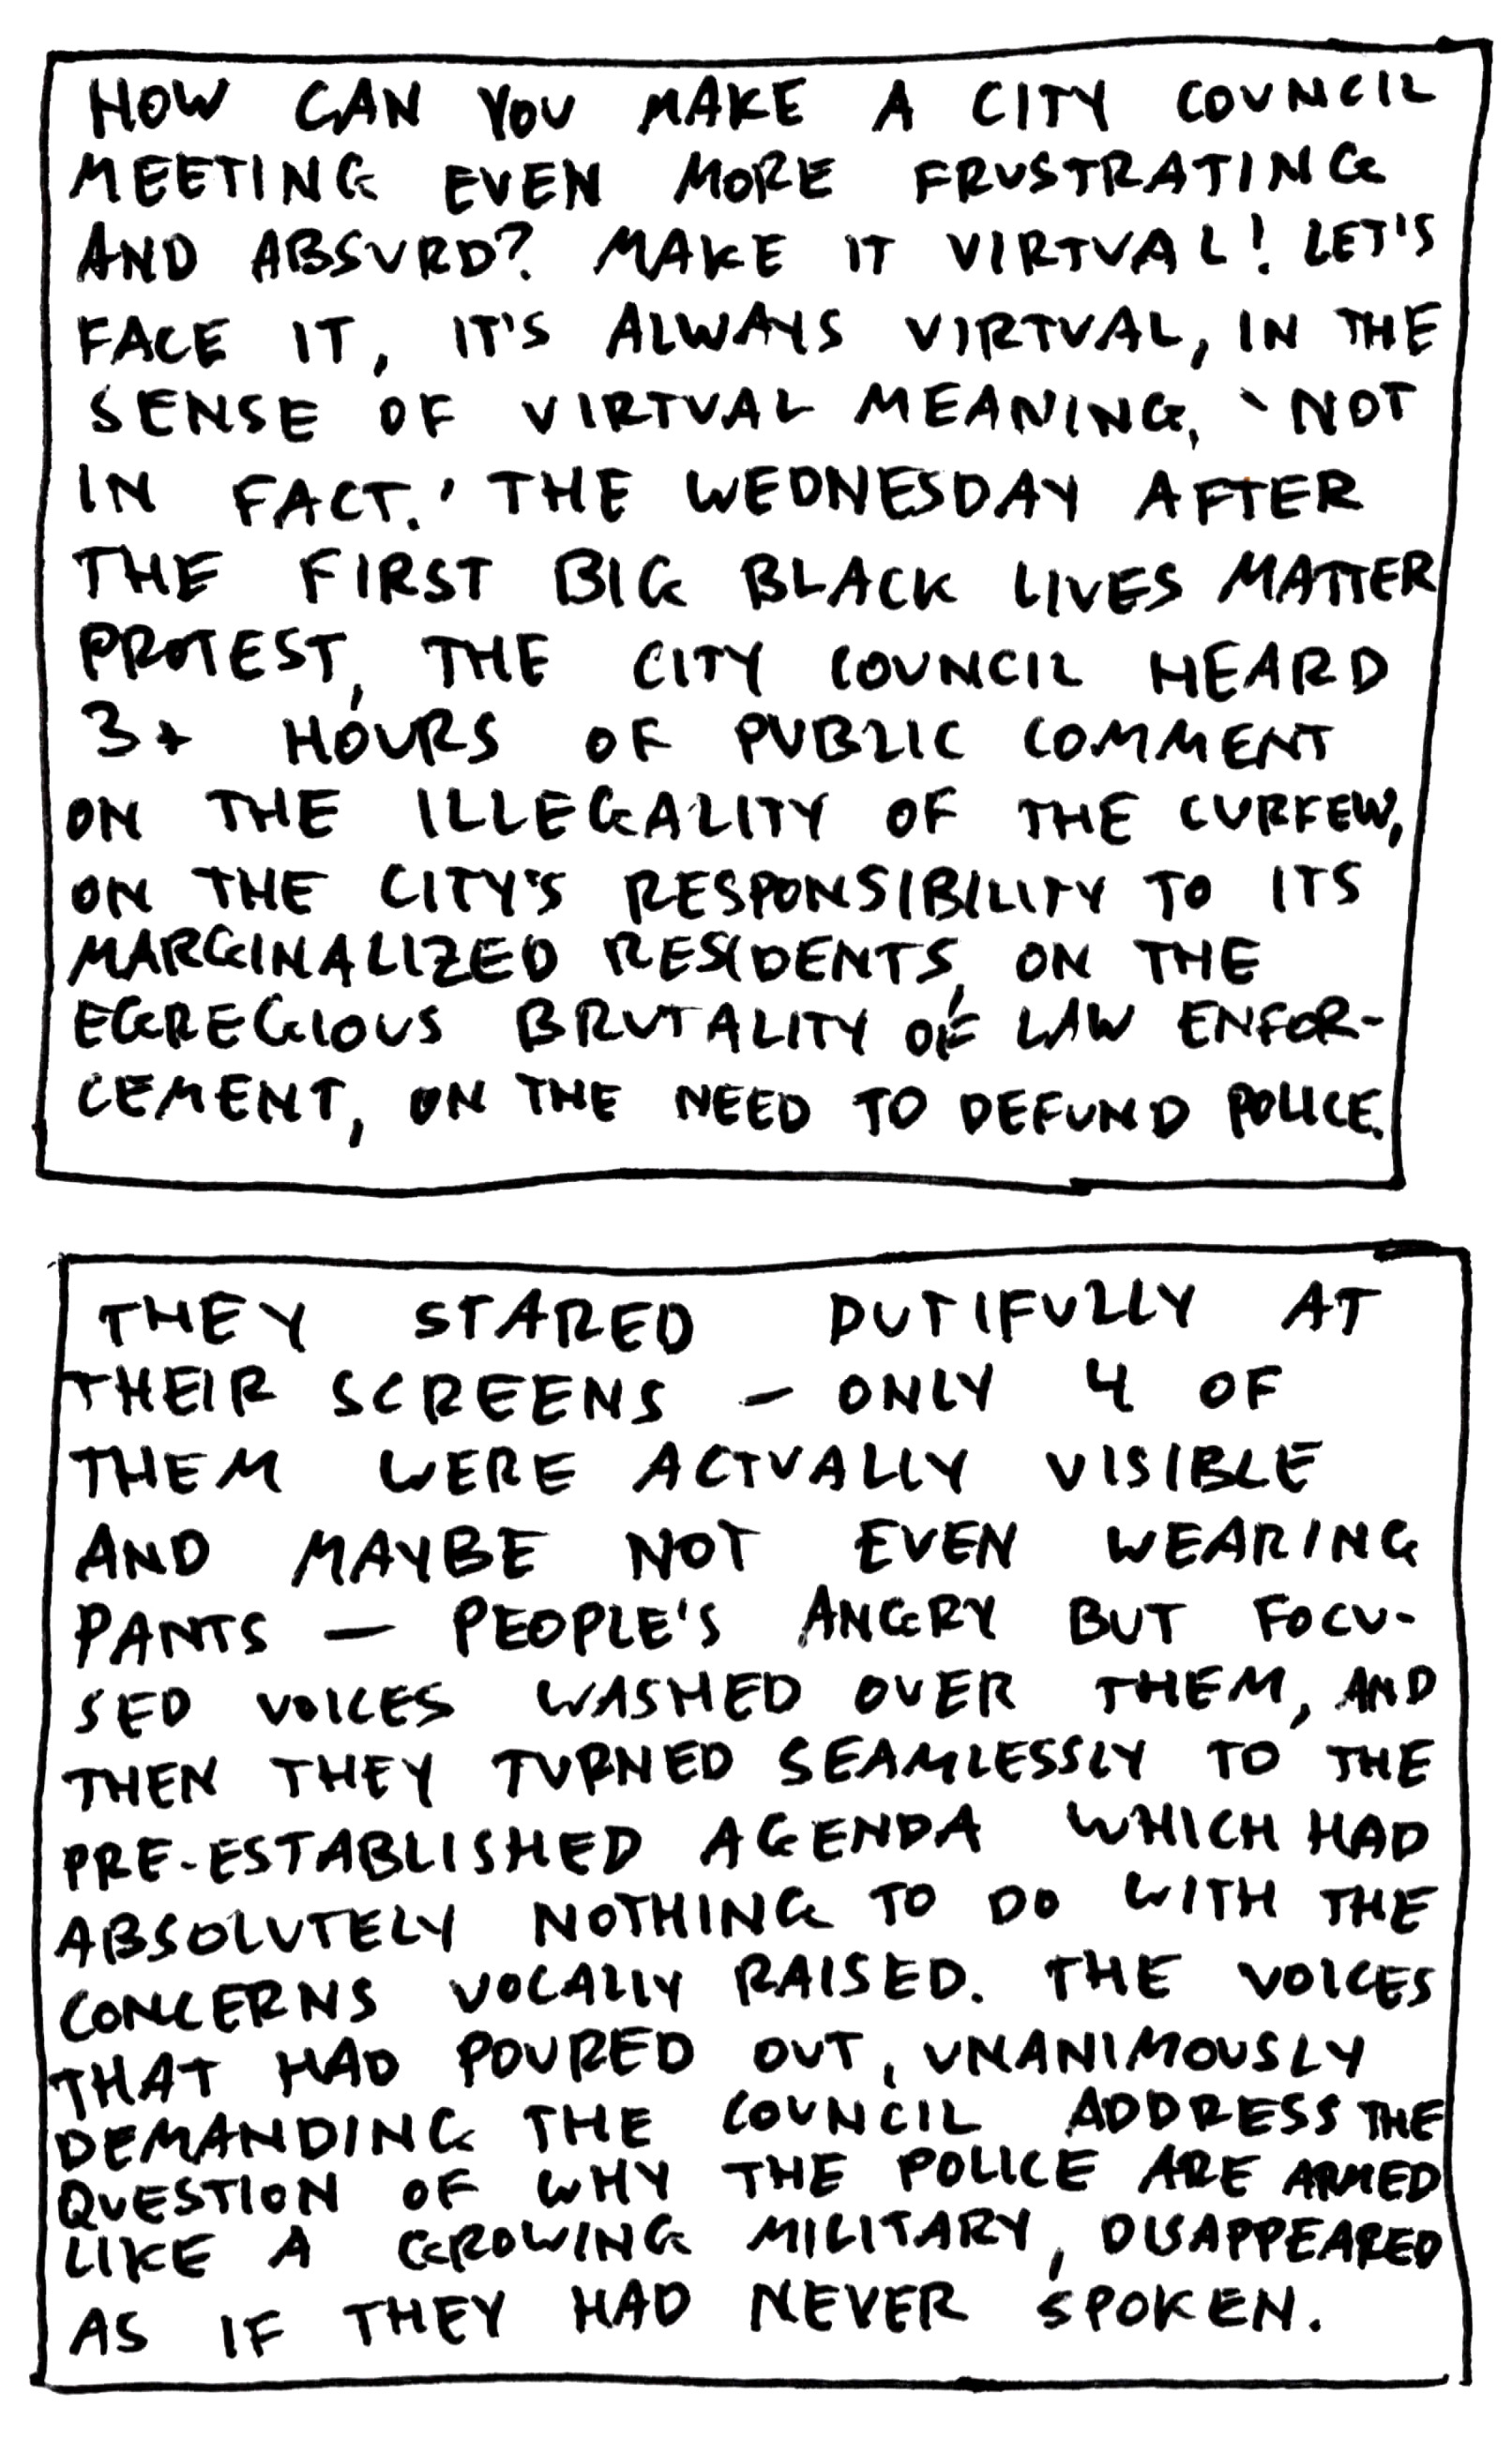 HOW CAN YOU MAKE A CITY COUNCIL
MEETING EVEN MORE FRUSTRATING
AND ABSURD? MAKE IT VIRTUAL! LET'S
FACE IT, IT'S ALWAYS VIRTUAL, IN THE
SENSE OF VIRTUAL MEANING, 'NOT
IN FACT.' THE WEDNESDAY AFTER
THE FIRST BIG BLACK LIVES MATTER
PROTEST, THE CITY COUNCIL HEARD
3+ HOURS OF PUBLIC COMMENT
ON THE ILLEGALITY OF THE CURFEW,
ON THE CITY'S RESPONSIBILITY TO ITS
MARGINALIZED RESIDENTS, ON THE
EGREGIOUS BRUTALITY OF LAW ENFOR-
CEMENT, ON THE NEED TO DEFUND POLICE.
THEY STARED DUTIFULLY AT
THEIR SCREENS – ONLY 4 OF
THEM WERE ACTUALLY VISIBLE
AND MAYBE NOT EVEN WEARING
PANTS — PEOPLE'S ANGRY BUT FOCU-
SED VOICES WASHED OVER THEM, AND
THEN THEY TURNED SEAMLESSLY TO THE
PRE-ESTABLISHED AGENDA WHICH HAD
ABSOLUTELY NOTHING TO DO WITH THE
CONCERNS VOCALLY RAISED. THE VOICES
THAT HAD POURED OUT, UNANIMOUSLY
DEMANDING THE COUNCIL ADDRESS THE
QUESTION OF WHY THE POLICE ARE ARMED
LIKE A GROWING MILITARY, DISAPPEARED
AS IF THEY HAD NEVER SPOKEN.